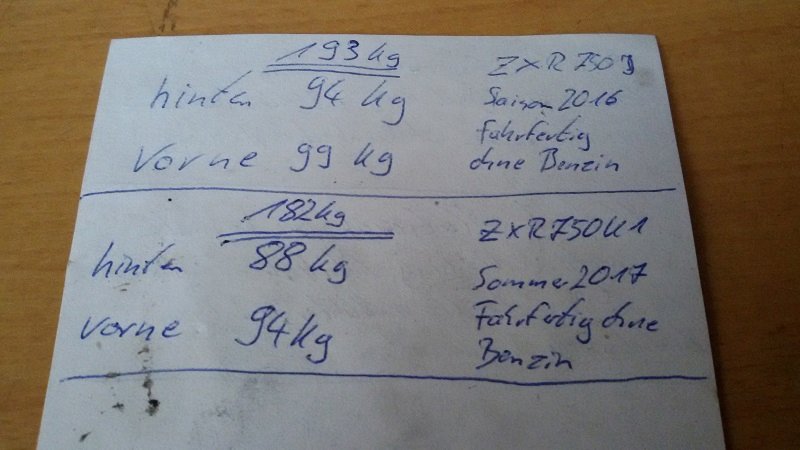 193kg
hinten 94 kg
vorne 99 kg
ZXR 750 J
Saison 2016
Fahrfertig
ohne Benzin
182kg
hinten 88 kg
vorne 94 kg
ZXR750K1
Sommer 2017
Fahrfertig ohne
Benzin